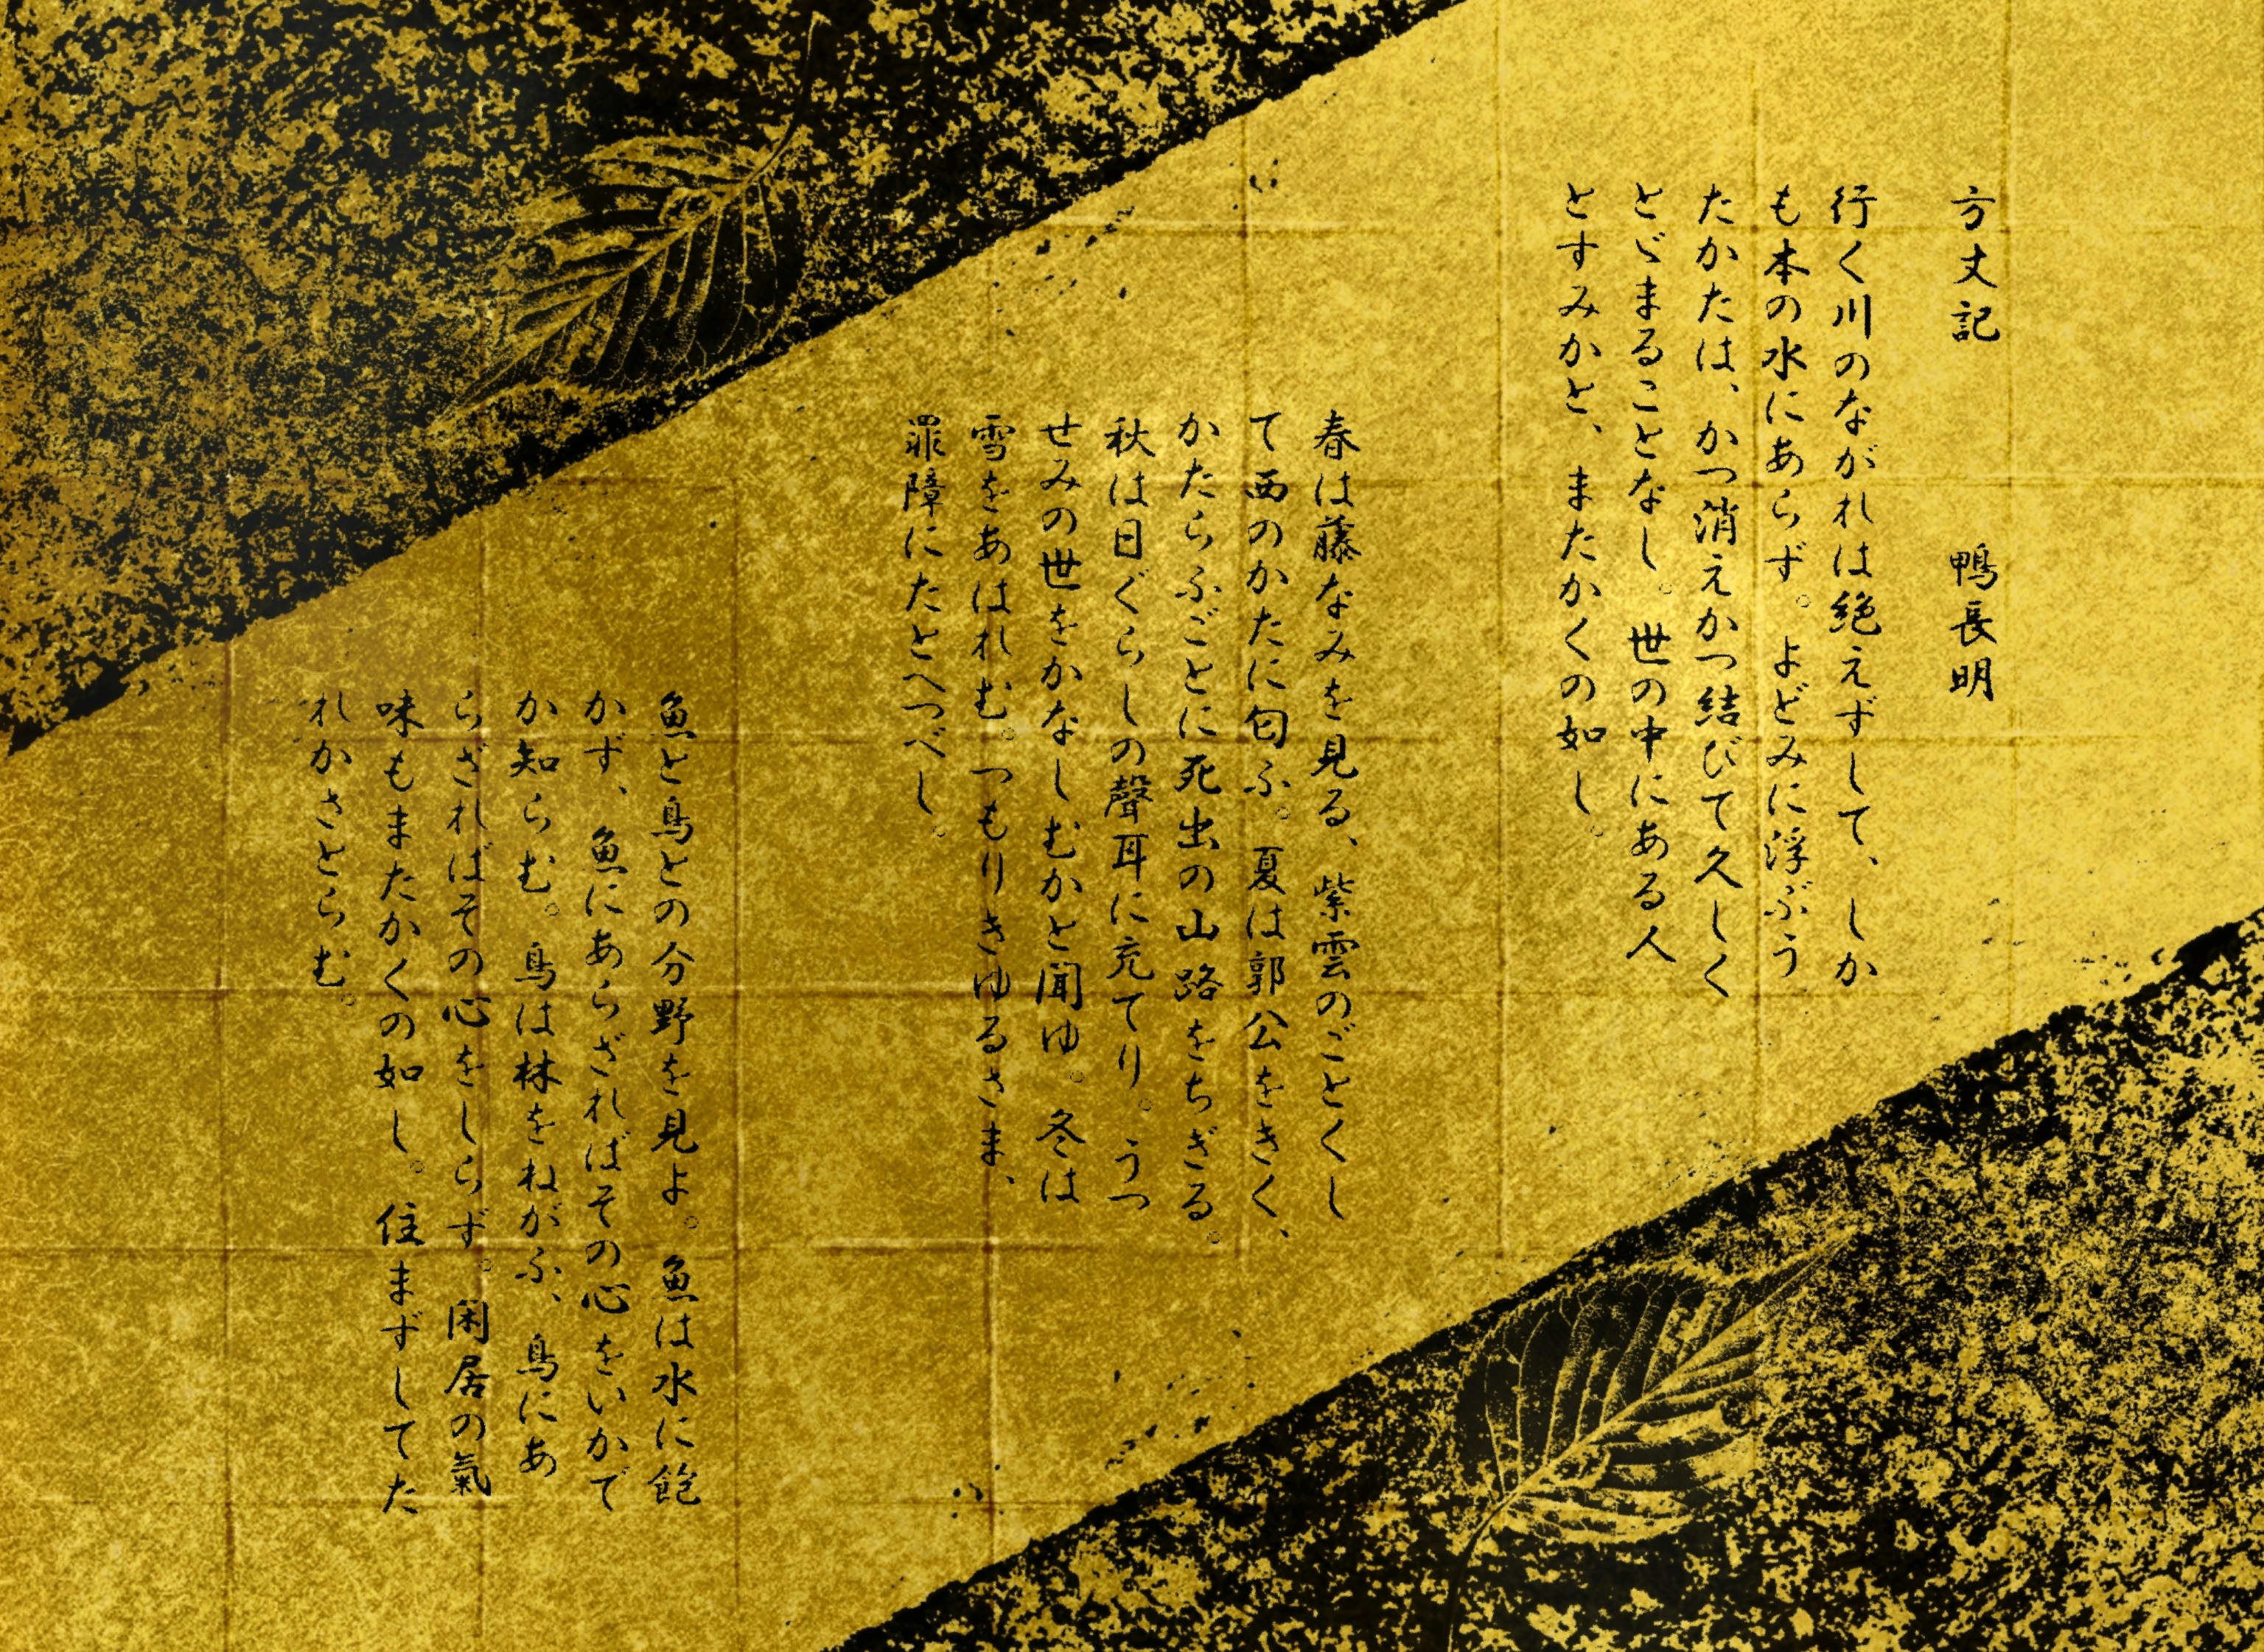 方丈記　鴨長明
行く川のながれは絶えずして、しか
も本の水にあらず。よどみに浮ぶう
たかたは、かつ消えかつ結びて久しく
とゞまることなし。世の中にある人
とすみかと、またかくの如し。
春は藤なみを見る、紫雲のごとくし
て西のかたに匂ふ。夏は郭公をきく、
かたらふごとに死出の山路をちぎる。
秋は日ぐらしの聲耳に充てり。うつ
せみの世をかなしむかと聞ゆ。冬は
雪をあはれむ。つもりきゆるさま、
罪障にたとへつべし。
魚と鳥との分野を見よ。魚は水に飽
かず、魚にあらざればその心をいかで
か知らむ。鳥は林をねがふ、鳥にあ
らざればその心をしらず。閑居の氣
味もまたかくの如し。住まずしてた
れかさとらむ。